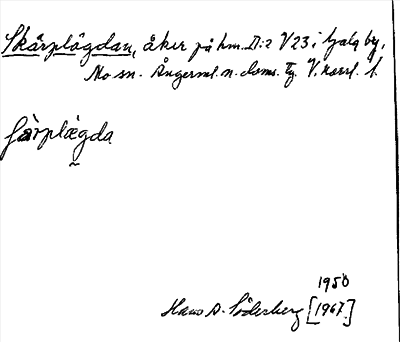 Skärplägdan, åker på hm. D:2 V23 i Hjälta by,
Mo sn. Ångerml. n. doms. tg. V.norrl. l.
särplägda
1950
Hans A. Söderberg [1967]